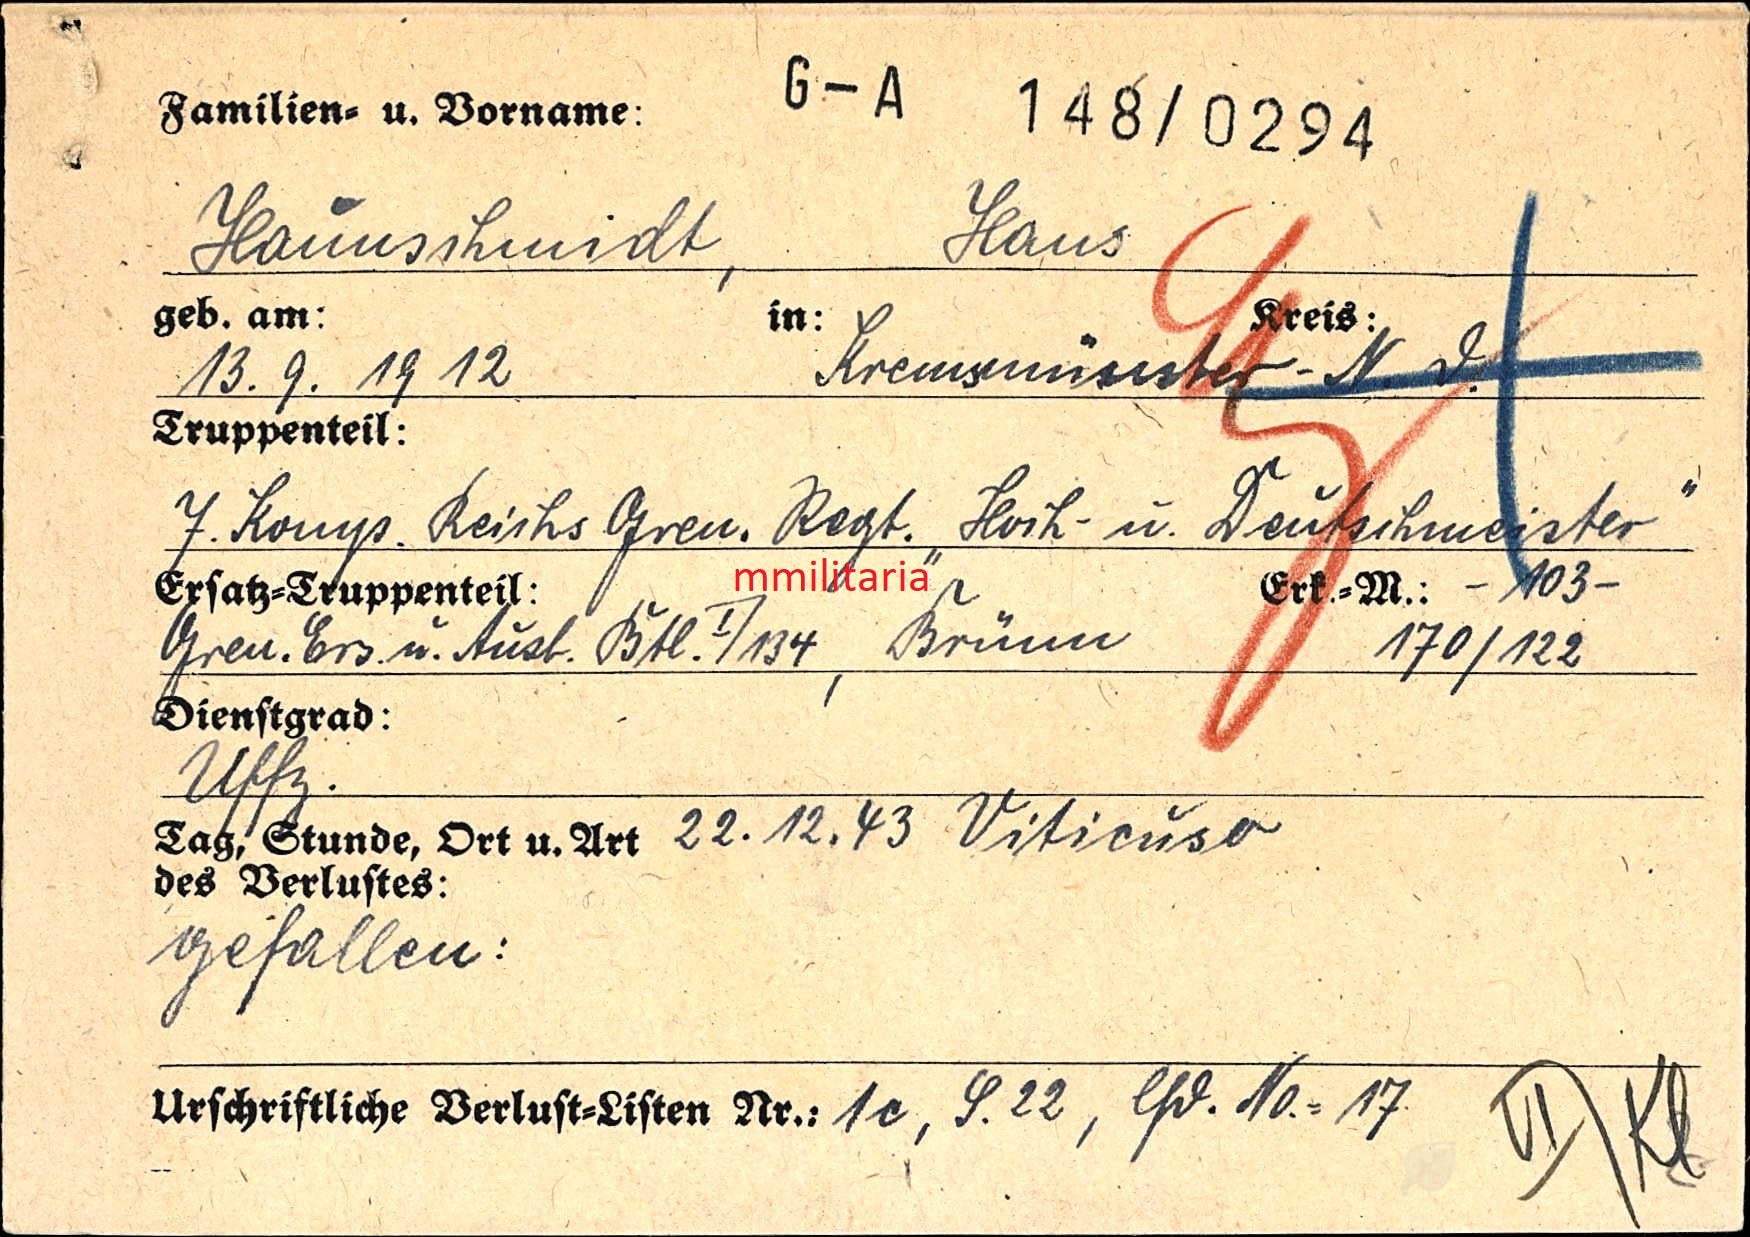 G-A 148/0294
Familien- u. Vorname:
Haunschmidt, Hans
geb. am: in: Kreis:
13. 9. 1912 Kremsmünster - N. D.
Truppenteil:
7. Komp. Reichs Gren. Regt. "Hoch- u. Deutschmeister"
mmilitaria
Ersatz-Truppenteil: Erk.-M.: - 103 -
Gren. Ers. u. Ausb. Btl. I/134, Brünn 170/122
Dienstgrad:
Uffz.
Tag, Stunde, Ort u. Art 22. 12. 43 Viticuso
des Verlustes:
gefallen:
Urschriftliche Verlust-Listen Nr.: 1c, S. 22, lfd. No.= 17
VI) Kl